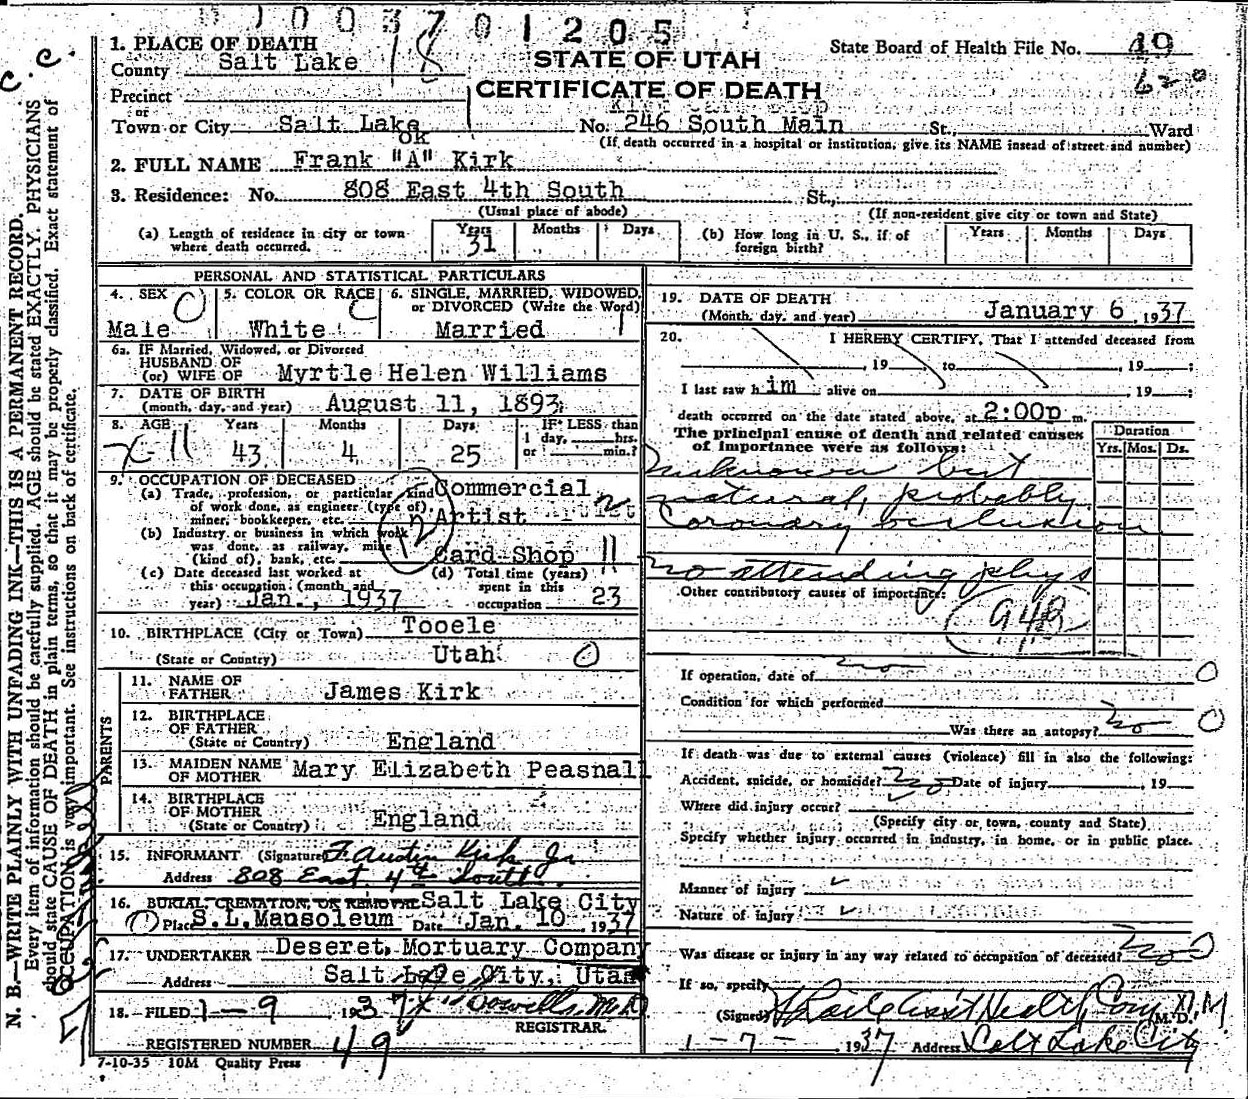 1003701205
1. PLACE OF DEATH
County Salt Lake 18
STATE OF UTAH
CERTIFICATE OF DEATH
State Board of Health File No. 49
620
c. c.
Precinct
or
Town or City Salt Lake No. 246 South Main St., Ward
(If death occurred in a hospital or institution, give its NAME insead of street and number)
ok
2. FULL NAME Frank "A" Kirk
3. Residence: No. 808 East 4th South St.,
(Usual place of abode) (If non-resident give city or town and State)
(a) Length of residence in city or town where death occurred. Years 31 Months Days
(b) How long in U. S., if of foreign birth? Years Months Days
PERSONAL AND STATISTICAL PARTICULARS
4. SEX Male O
5. COLOR OR RACE White C
6. SINGLE, MARRIED, WIDOWED, or DIVORCED (Write the Word) Married 1
6a. IF Married, Widowed, or Divorced
HUSBAND OF
(or) WIFE OF Myrtle Helen Williams
7. DATE OF BIRTH
(month, day, and year) August 11, 1893
8. AGE Years 43 Months 4 Days 25 IF LESS than 1 day, hrs. or min.?
x-11
9. OCCUPATION OF DECEASED
(a) Trade, profession, or particular kind of work done, as engineer (type of), miner, bookkeeper, etc. Commercial Artist
(b) Industry or business in which work was done, as railway, mine (kind of), bank, etc. Card Shop 11
12
(c) Date deceased last worked at this occupation (month and year) Jan., 1937
(d) Total time (years) spent in this occupation 23
10. BIRTHPLACE (City or Town) Tooele
(State or Country) Utah O
PARENTS
11. NAME OF FATHER James Kirk
12. BIRTHPLACE OF FATHER
(State or Country) England
13. MAIDEN NAME OF MOTHER Mary Elizabeth Peasnall
14. BIRTHPLACE OF MOTHER
(State or Country) England
15. INFORMANT (Signature) F. Austin Kirk Jr
Address 808 East 4th South.
16. BURIAL, CREMATION, OR REMOVAL Salt Lake City
Place S.L. Mausoleum Date Jan. 10, 1937
17. UNDERTAKER Deseret Mortuary Company
Address Salt Lake City, Utah
18. FILED 1-9 1937 M.D.
REGISTRAR.
REGISTERED NUMBER 49
7-10-35 10M Quality Press
19. DATE OF DEATH
(Month, day, and year) January 6, 1937
20. I HEREBY CERTIFY, That I attended deceased from
, 19 to , 19 ;
I last saw him alive on , 19 ;
death occurred on the date stated above, at 2:00p m.
The principal cause of death and related causes of importance were as follows:
Duration
Yrs. Mos. Ds.
Unknown but
natural, probably
Coronary occlusion
no attending phys
Other contributory causes of importance:
94B
If operation, date of no O
Condition for which performed
Was there an autopsy? no O
If death was due to external causes (violence) fill in also the following:
Accident, suicide, or homicide? no Date of injury , 19
Where did injury occur?
(Specify city or town, county and State)
Specify whether injury occurred in industry, in home, or in public place.
Manner of injury
Nature of injury
Was disease or injury in any way related to occupation of deceased? no
If so, specify
(Signed) Ass't Health Com M. D.
1-7- 1937 Address Salt Lake City
N. B.—WRITE PLAINLY WITH UNFADING INK—THIS IS A PERMANENT RECORD.
Every item of information should be carefully supplied. AGE should be stated EXACTLY. PHYSICIANS
should state CAUSE OF DEATH in plain terms, so that it may be properly classified. Exact statement of
OCCUPATION is very important. See instructions on back of certificate.